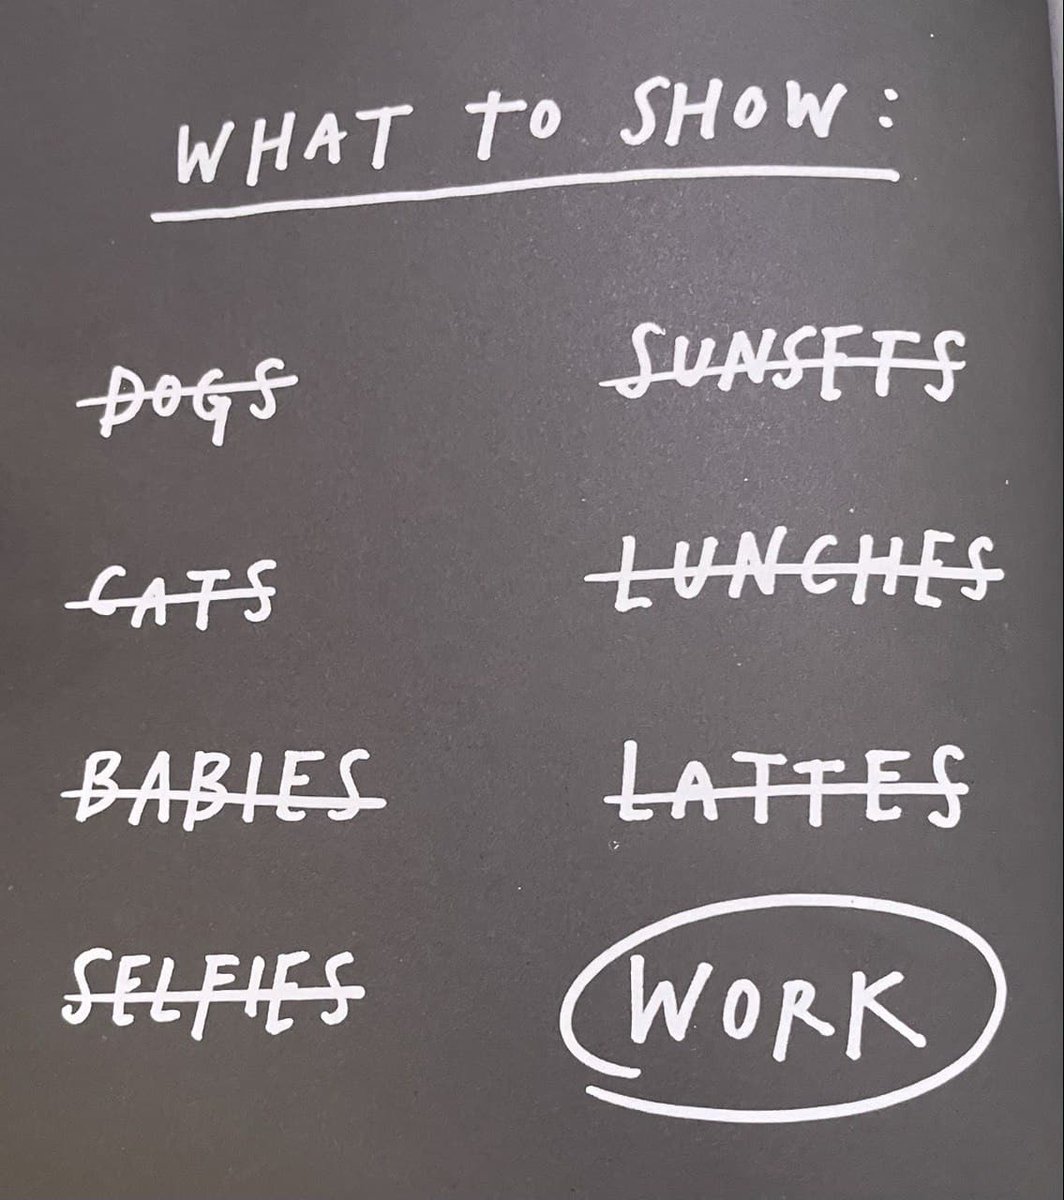 WHAT TO SHOW:
DOGS
CATS
BABIES
SELFIES
SUNSETS
LUNCHES
LATTES
WORK